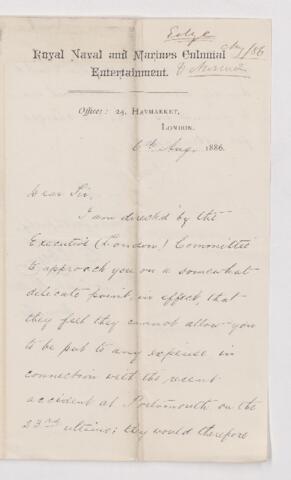 Royal Naval and Marines Colonial
Entertainment.
Office: 24, Haymarket,
London.
6th Aug. 1886.
Dear Sir,
I am directed by the
Executive (London) Committee
to approach you on a somewhat
delicate point, in effect, that
they feel they cannot allow you
to be put to any expense in
connection with the recent
accident at Portsmouth on the
23rd ultimo; they would therefore